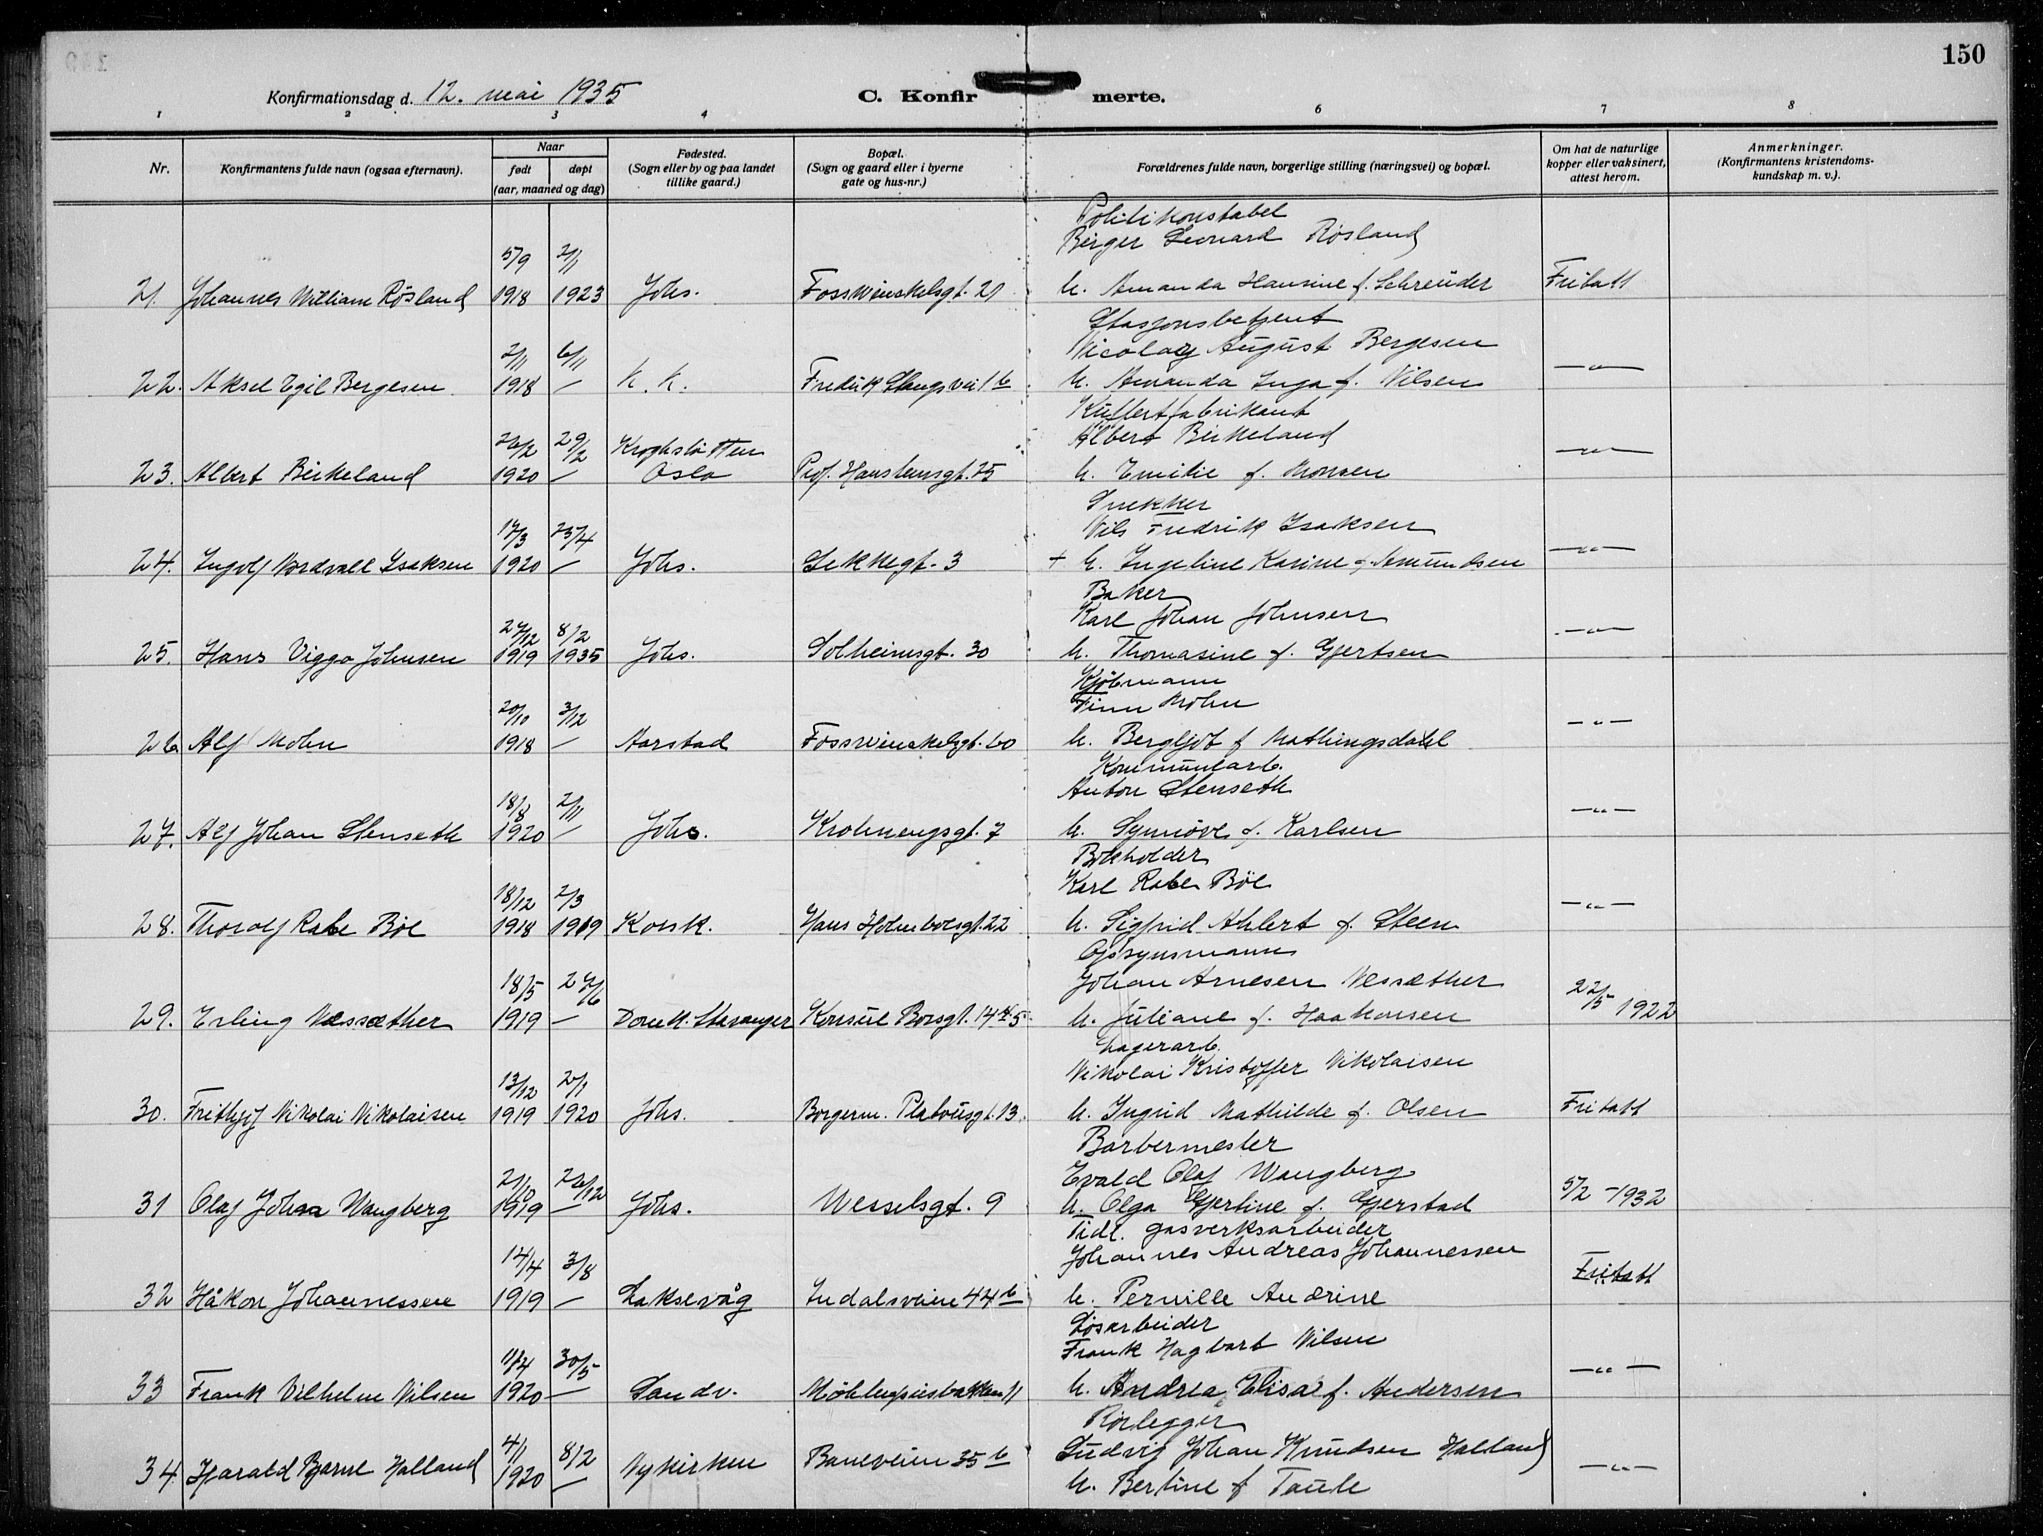 150
Konfirmationsdag d. 12. mai 1935
C. Konfir merte.
1 2 3 4 6 7 8
Nr.
Konfirmantens fulde navn (ogsaa efternavn).
Naar
født døpt
(aar, maaned og dag)
Fødested.
(Sogn eller by og paa landet
tillike gaard.)
Bopæl.
(Sogn og gaard eller i byerne
gate og hus-nr.)
Forældrenes fulde navn, borgerlige stilling (næringsvei) og bopæl.
Om hat de naturlige
kopper eller vaksinert,
attest herom.
Anmerkninger.
(Konfirmantens kristendoms-
kundskap m. v.).
Politikonstabel
Birger Leonard Røsland
5/9 2/11
21. Johannes William Røsland 1918 1923 Johs. Fosswinckelsgt. 21 h. Amanda Hansine f. Schreuder Fritatt
Stasjonsbetjent
Nicolay August Bergesen
2/11 6/11
22. Aksel Egil Bergesen 1918 — K. K. Fredrik Stangsvei 1 b h. Amanda Inga f. Nilsen —"—
Kuffertfabrikant
Albert Birkeland
26/2 29/2 Krohsletten
23. Albert Birkeland 1920 — Oslo Prof. Hansteensgt. 25 h. Emilie f. Monsen —"—
Snekker
Nils Fredrik Isaksen
17/3 25/4
24. Ingolf Nordvall Isaksen 1920 — Johs. Lekvegt. 3 + h. Ingeline Karine f. Amundsen —"—
Baker
Karl Johan Johnsen
27/12 8/2
25. Hans Viggo Johnsen 1919 1935 Johs. Solheimsgt. 30 h. Thomasine f. Gjertsen —"—
Kjøbmann
Finn Mohn
20/10 3/12
26 Alf Mohn 1918 — Aarstad Fosswinckelsgt. 60 h. Bergljot f Mathingsdahl —"—
Kommunearb.
Anton Stenseth
18/8 2/11
27. Alf Johan Stenseth 1920 — Johs. Krohnengsgt. 7 h. Synnøve f. Karlsen —"—
Bokholder
Karl Rabe Böe
18/12 2/3
28. Thorolf Rabe Böe 1918 1919 Korsk. Hans Holmboesgt. 22 h. Sigfrid Ahlert f. Steen —"—
Opsynsmann
Johan Arnesen Næssæther
18/5 27/6
29. Erling Næssæther 1919 — Domk. Stavanger Konsul Børsgt. 14 h. Juliane f. Haakonsen 22/5 1922
Lagerarb.
Nikolai Kristoffer Nikolaisen
13/12 2/1
30. Frithjof Nikolai Nikolaisen 1919 1920 Johs. Borgerm. Platousgt. 13. h. Ingrid Mathilde f. Olsen Fritatt
Barbermester
Evald Olaf Wangberg
2/10 26/12
31 Olaf Johan Wangberg 1919 — Johs. Wesselsgt. 9 h. Olga Gjertine f. Gjerstad 5/2 - 1932
Tidl. gasverksarbeider
Johannes Andreas Johannessen
14/4 3/8
32 Håkon Johannessen 1919 — Laksevåg Indalsveien 44 b h. Pernille Andrine Fritatt
Løsarbeider
Frank Hagbart Nilsen
11/4 30/5
33 Frank Vilhelm Nilsen 1920 — Sandv. Møhlenprisbakken 11 h. Andrea Elisa f. Andersen —"—
Rørlegger
4/1 8/2 Ludvig Johan Knudsen Halland
34. Harald Bjarne Halland 1920 — Nykirken Baneveien 35 b h. Bertine f Taule —"—